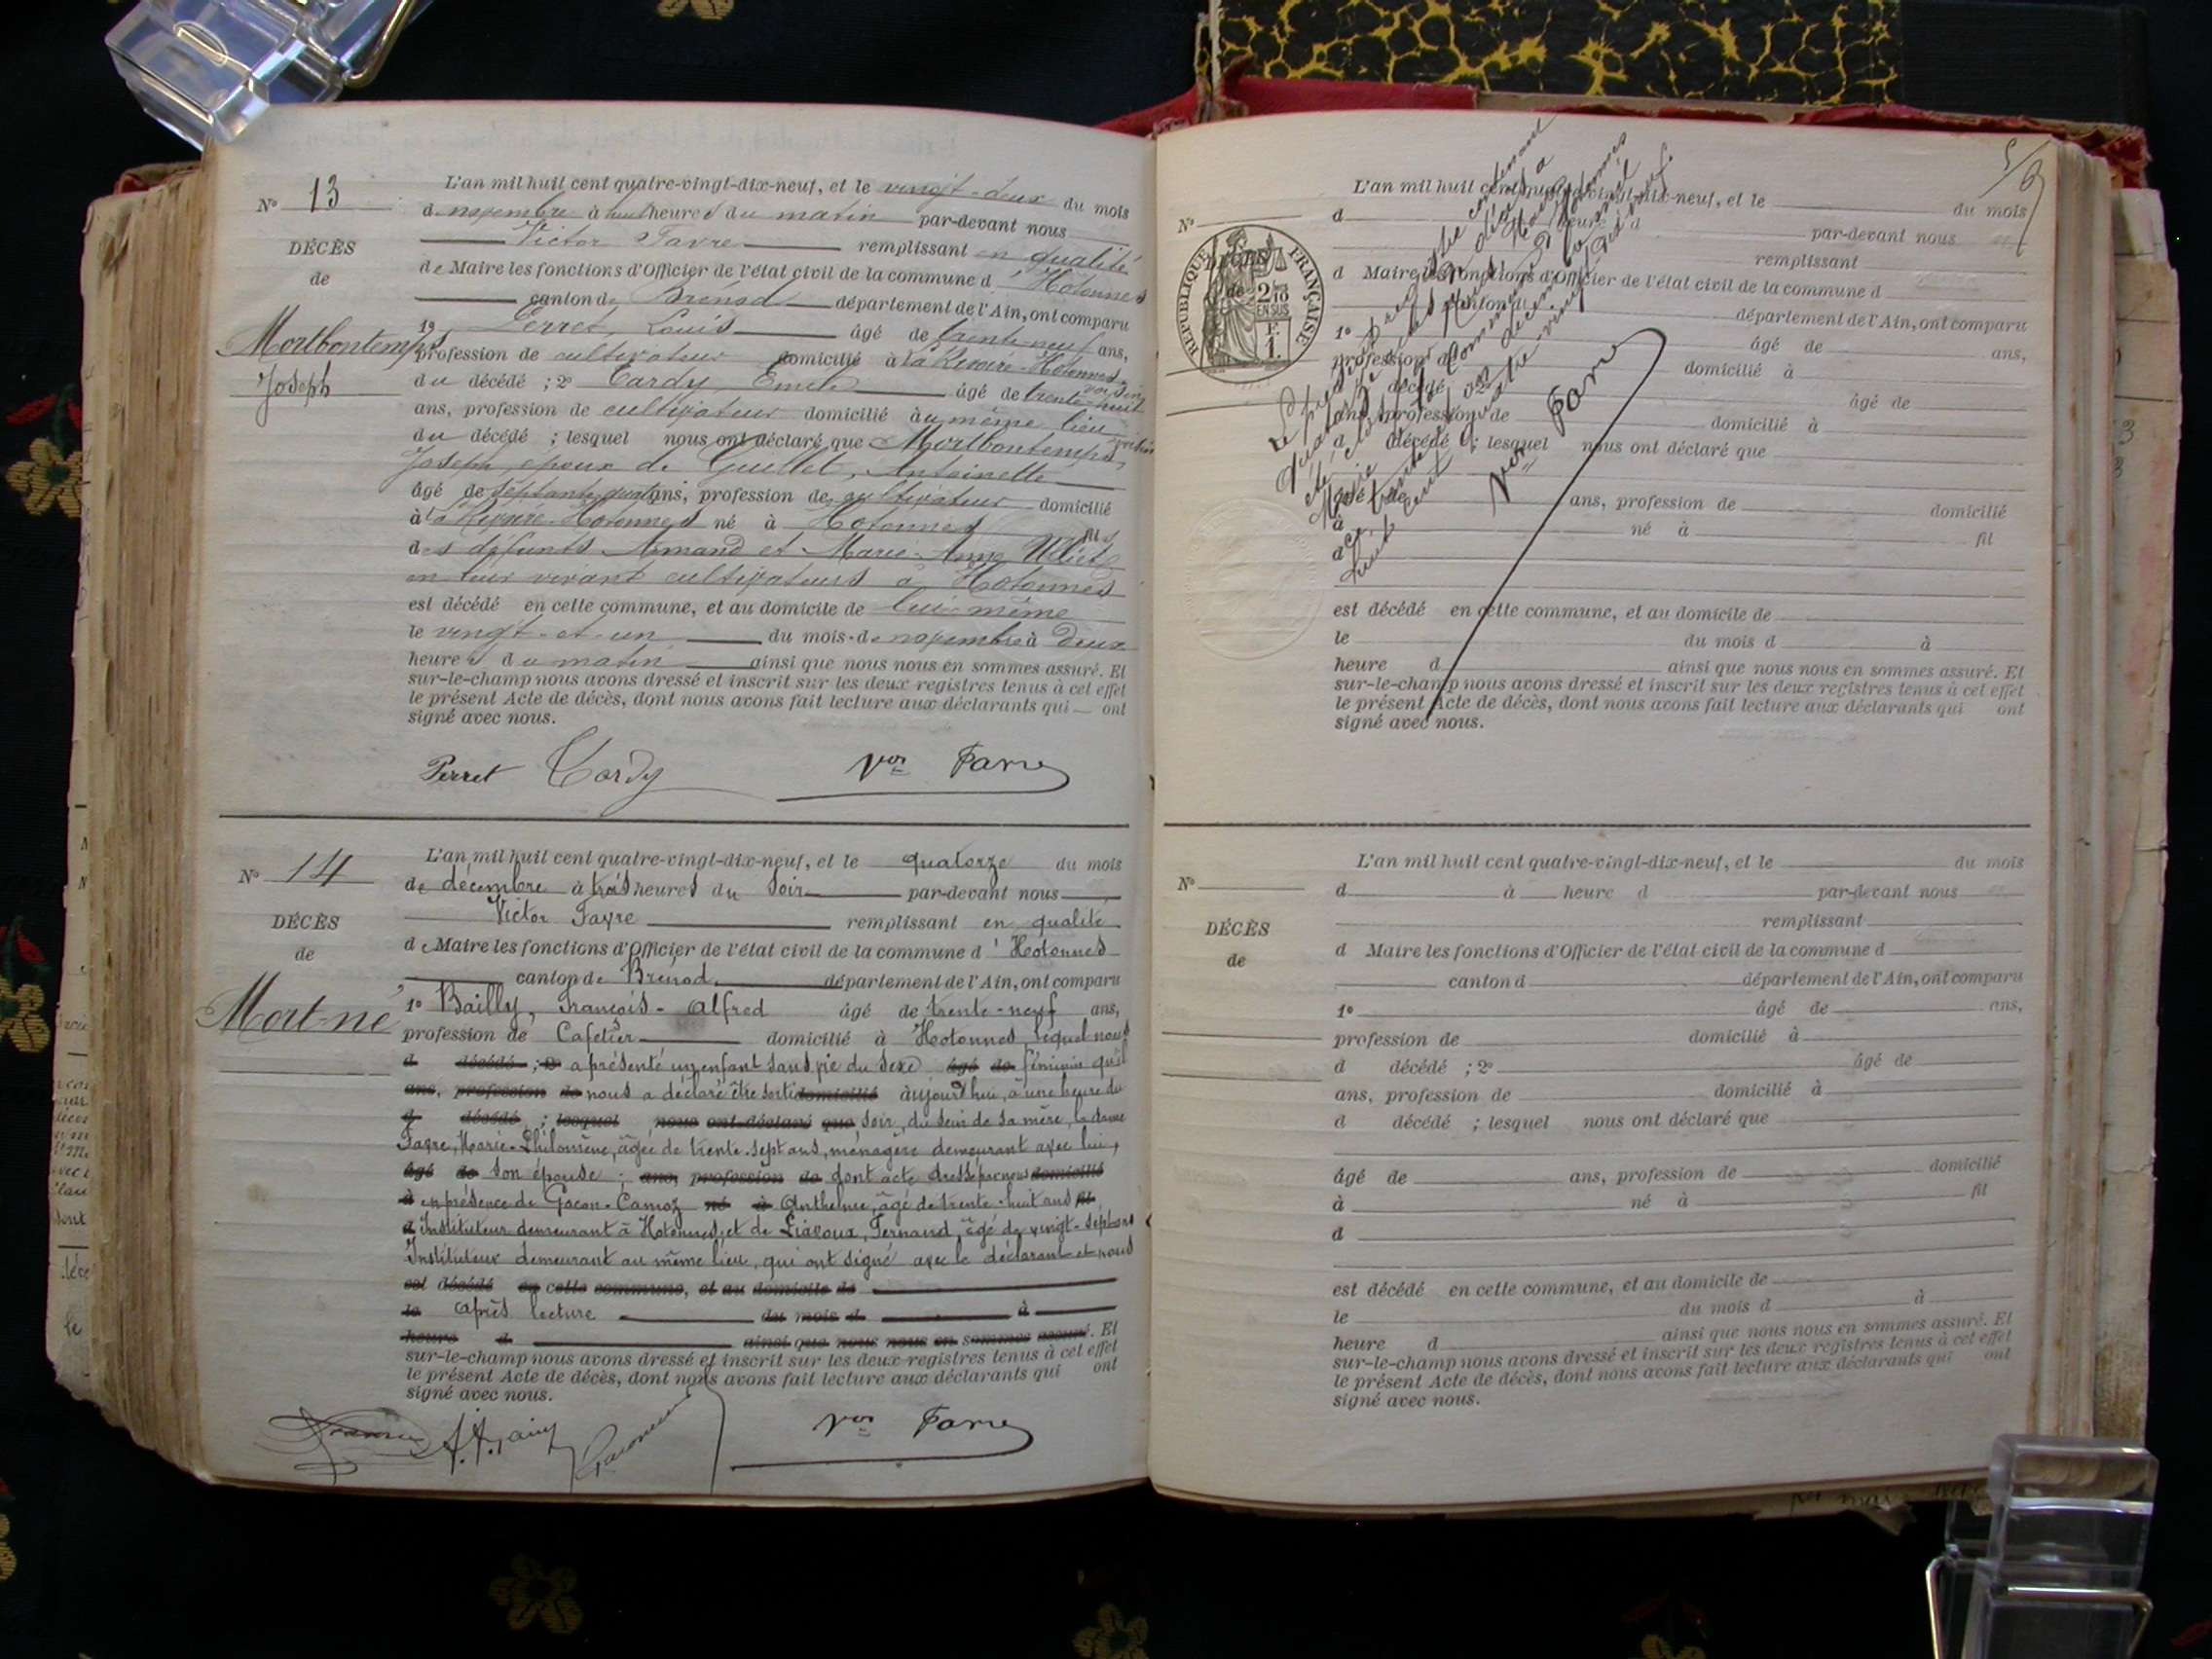 L'an mil huit cent quatre-vingt-dix-neuf, et le vingt-deux du mois
N° 13
de novembre à huit heures du matin par-devant nous
Victor Favre remplissant en qualité
DÉCÈS
de Maire les fonctions d'Officier de l'état civil de la commune d'Hotonnes
de
canton de Brénod département de l'Ain, ont comparu
Mortbontemps
1° Perret, Louis âgé de trente-neuf ans,
profession de cultivateur domicilié à la Rivoire-Hotonnes voisin
Joseph
du décédé ; 2° Tardy, Emile âgé de trente-huit
ans, profession de cultivateur domicilié au même lieu voisin
du décédé ; lesquel nous ont déclaré que Mortbontemps,
Joseph, époux de Guillet, Antoinette
âgé de septante ans, profession de cultivateur domicilié
à la Rivoire-Hotonnes né à Hotonnes fils
des défunts Armand et Marie-Anne
en leur vivant cultivateurs à Hotonnes
est décédé en cette commune, et au domicile de lui-même
le vingt-et-un du mois de novembre à deux
heures du matin ainsi que nous nous en sommes assuré. Et
sur-le-champ nous avons dressé et inscrit sur les deux registres tenus à cet effet
le présent Acte de décès, dont nous avons fait lecture aux déclarants qui ont
signé avec nous.
Perret Tardy Vor Favre
L'an mil huit cent quatre-vingt-dix-neuf, et le quatorze du mois
N° 14
de décembre à trois heures du soir par-devant nous
Victor Favre remplissant en qualité
DÉCÈS
de Maire les fonctions d'Officier de l'état civil de la commune d'Hotonnes
de
canton de Brénod département de l'Ain, ont comparu
Mort-né
1° Bailly, François-Alfred âgé de trente-neuf ans,
profession de Cafetier domicilié à Hotonnes, lequel nous
d décédé ; 2° a présenté un enfant sans vie du sexe âgé de féminin qu'il
ans, profession de nous a déclaré être sorti domicilié aujourd'hui, à une heure du
d décédé ; lesquel nous ont déclaré que soir, du sein de sa mère, la dame
Favre, Marie-Philomène, âgée de trente-sept ans, ménagère demeurant avec lui,
âgé de son épouse ; ans, profession de dont acte dressé par nous domicilié
à en présence de Gacon-Camoz né à Anthelme, âgé de trente-huit ans fil
d Instituteur demeurant à Hotonnes, et de Liavoux, Fernand, âgé de vingt-sept ans
Instituteur demeurant au même lieu, qui ont signé avec le déclarant et nous
est décédé en cette commune, et au domicile de
le après lecture du mois d à
heure d ainsi que nous nous en sommes assuré. Et
sur-le-champ nous avons dressé et inscrit sur les deux registres tenus à cet effet
le présent Acte de décès, dont nous avons fait lecture aux déclarants qui ont
signé avec nous.
Vor Favre
L'an mil huit cent quatre-vingt-dix-neuf, et le du mois
N°
d heure d par-devant nous
remplissant
RÉPUBLIQUE FRANÇAISE
DÉCÈS
de
2/10 EN SUS
1 F.
d Maire les fonctions d'Officier de l'état civil de la commune d
canton d département de l'Ain, ont comparu
1° âgé de ans,
profession de domicilié à
d décédé ; 2° âgé de
ans, profession de domicilié à
d décédé ; lesquel nous ont déclaré que
âgé de ans, profession de domicilié
à né à fil
d
est décédé en cette commune, et au domicile de
le du mois d à
heure d ainsi que nous nous en sommes assuré. Et
sur-le-champ nous avons dressé et inscrit sur les deux registres tenus à cet effet
le présent Acte de décès, dont nous avons fait lecture aux déclarants qui ont
signé avec nous.
Vor Favre
L'an mil huit cent quatre-vingt-dix-neuf, et le du mois
N°
d à heure d par-devant nous
remplissant
DÉCÈS
de
d Maire les fonctions d'Officier de l'état civil de la commune d
canton d département de l'Ain, ont comparu
1° âgé de ans,
profession de domicilié à
d décédé ; 2° âgé de
ans, profession de domicilié à
d décédé ; lesquel nous ont déclaré que
âgé de ans, profession de domicilié
à né à fil
d
est décédé en cette commune, et au domicile de
le du mois d à
heure d ainsi que nous nous en sommes assuré. Et
sur-le-champ nous avons dressé et inscrit sur les deux registres tenus à cet effet
le présent Acte de décès, dont nous avons fait lecture aux déclarants qui ont
signé avec nous.